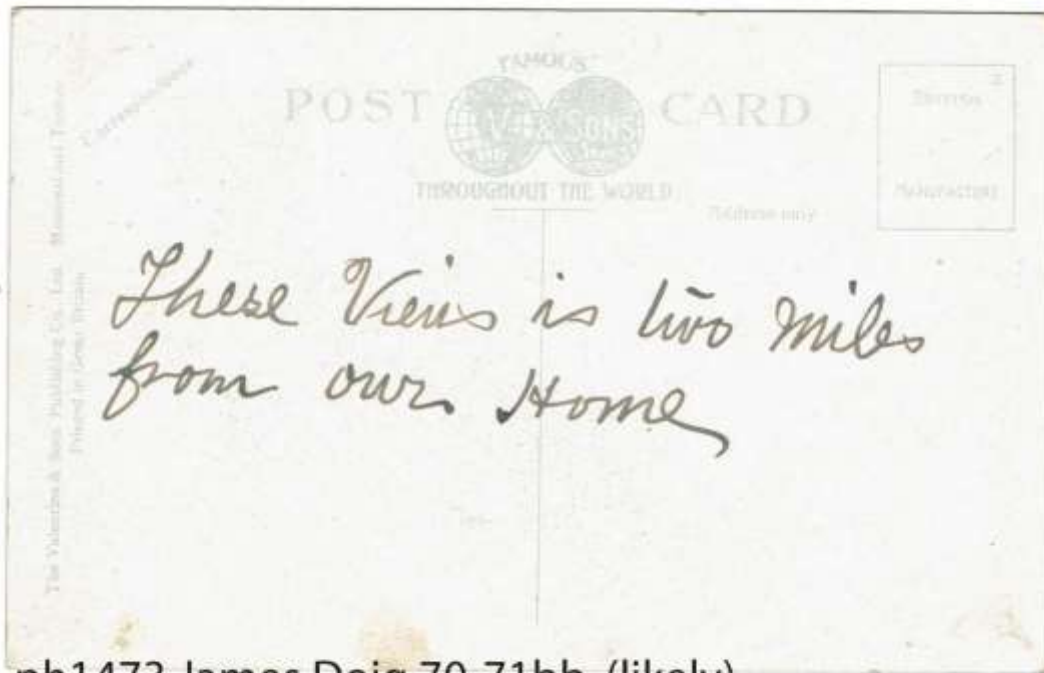 FAMOUS
POST CARD
V & SONS
THROUGHOUT THE WORLD
Correspondence
Address only
BRITISH
MANUFACTURE
The Valentine & Sons Publishing Co., Ltd. Montreal and Toronto
Printed in Great Britain
These Views is two Miles
from our Home
ph1473 James Doig 70-71bb (likely)